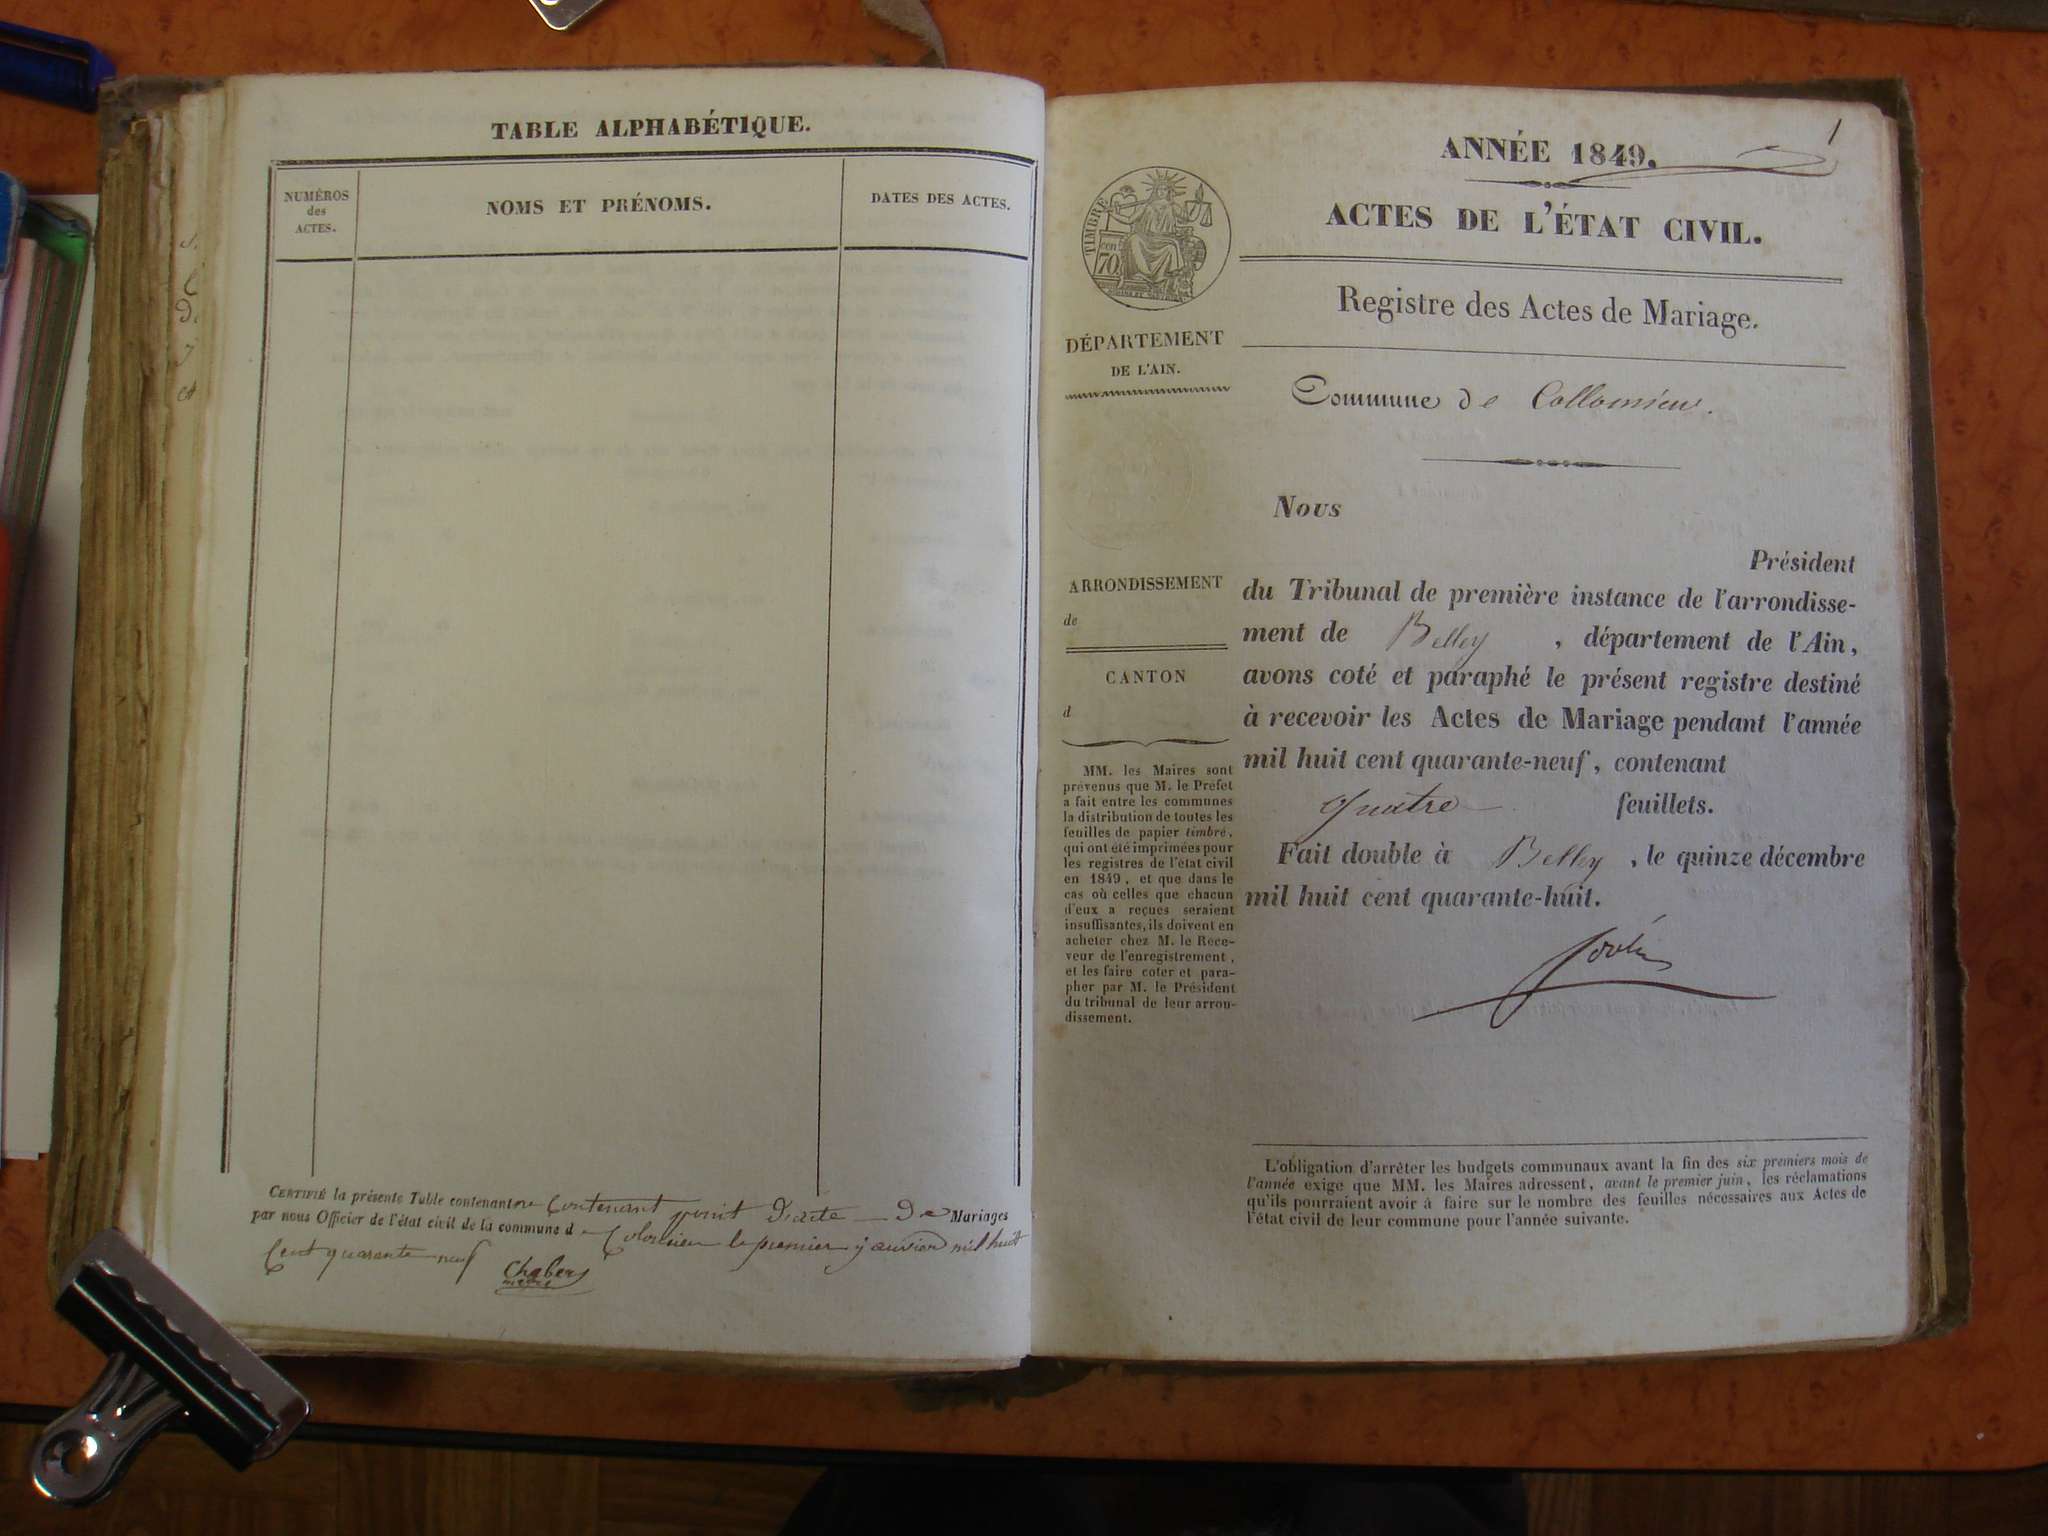 TABLE ALPHABÉTIQUE.
NUMÉROS
des
ACTES.
NOMS ET PRÉNOMS.
DATES DES ACTES.
CERTIFIÉ la présente Table contenant contenant point d'acte de Mariages
par nous Officier de l'état civil de la commune de Colomieu le premier janvier mil huit
Cent quarante neuf
Chaber
maire
1
ANNÉE 1849.
ACTES DE L'ÉTAT CIVIL.
Registre des Actes de Mariage.
TIMBRE
70
DÉPARTEMENT
DE L'AIN.
Commune de Collomieu.
ARRONDISSEMENT
de
CANTON
d
MM. les Maires sont
prévenus que M. le Préfet
a fait entre les communes
la distribution de toutes les
feuilles de papier timbré,
qui ont été imprimées pour
les registres de l'état civil
en 1849, et que dans le
cas où celles que chacun
d'eux a reçues seraient
insuffisantes, ils doivent en
acheter chez M. le Rece-
veur de l'enregistrement,
et les faire coter et para-
pher par M. le Président
du tribunal de leur arron-
dissement.
Nous
Président
du Tribunal de première instance de l'arrondisse-
ment de Belley, département de l'Ain,
avons coté et paraphé le présent registre destiné
à recevoir les Actes de Mariage pendant l'année
mil huit cent quarante-neuf, contenant
quatre feuillets.
Fait double à Belley, le quinze décembre
mil huit cent quarante-huit.
L'obligation d'arrêter les budgets communaux avant la fin des six premiers mois de
l'année exige que MM. les Maires adressent, avant le premier juin, les réclamations
qu'ils pourraient avoir à faire sur le nombre des feuilles nécessaires aux Actes de
l'état civil de leur commune pour l'année suivante.